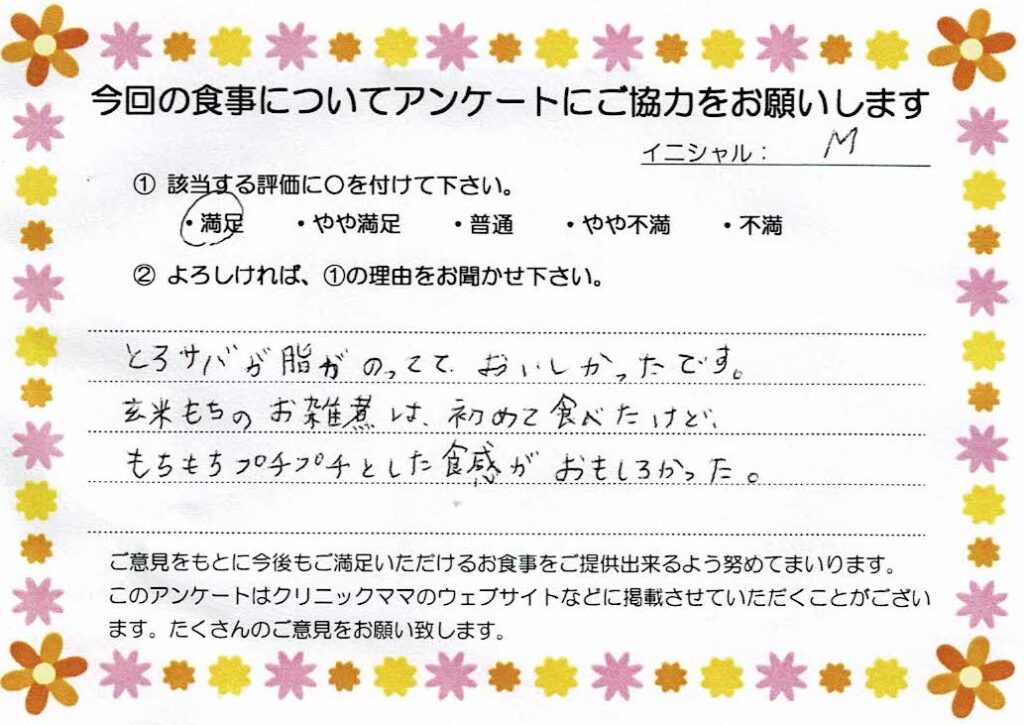 今回の食事についてアンケートにご協力をお願いします
イニシャル： M
① 該当する評価に〇を付けて下さい。
・満足 ・やや満足 ・普通 ・やや不満 ・不満
② よろしければ、①の理由をお聞かせ下さい。
とろサバが脂がのってて おいしかったです。
玄米もちの お雑煮は、初めて食べたけど、
もちもちプチプチとした食感が おもしろかった。
ご意見をもとに今後もご満足いただけるお食事をご提供出来るよう努めてまいります。
このアンケートはクリニックママのウェブサイトなどに掲載させていただくことがござい
ます。たくさんのご意見をお願い致します。